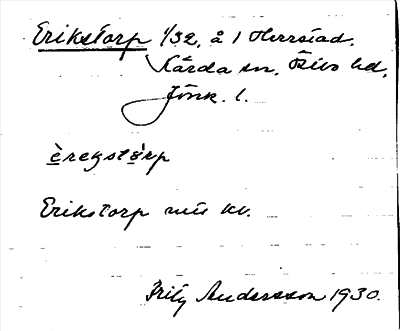 Erikstorp 1/32, å 1 Herrstad.
Kärda sn, Östbo hd,
Jönk. l.
èrekstòrp
Erikstorp mtl kb.
Frity Andersson 1930.